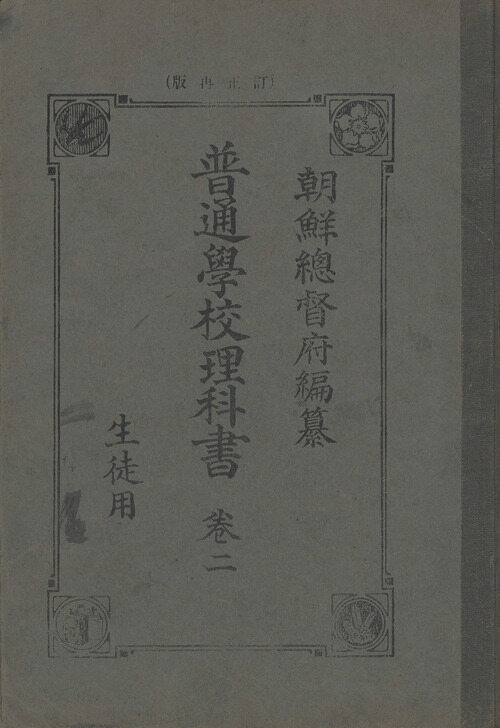 (訂正再版)
朝鮮總督府編纂
普通學校理科書 卷二
生徒用